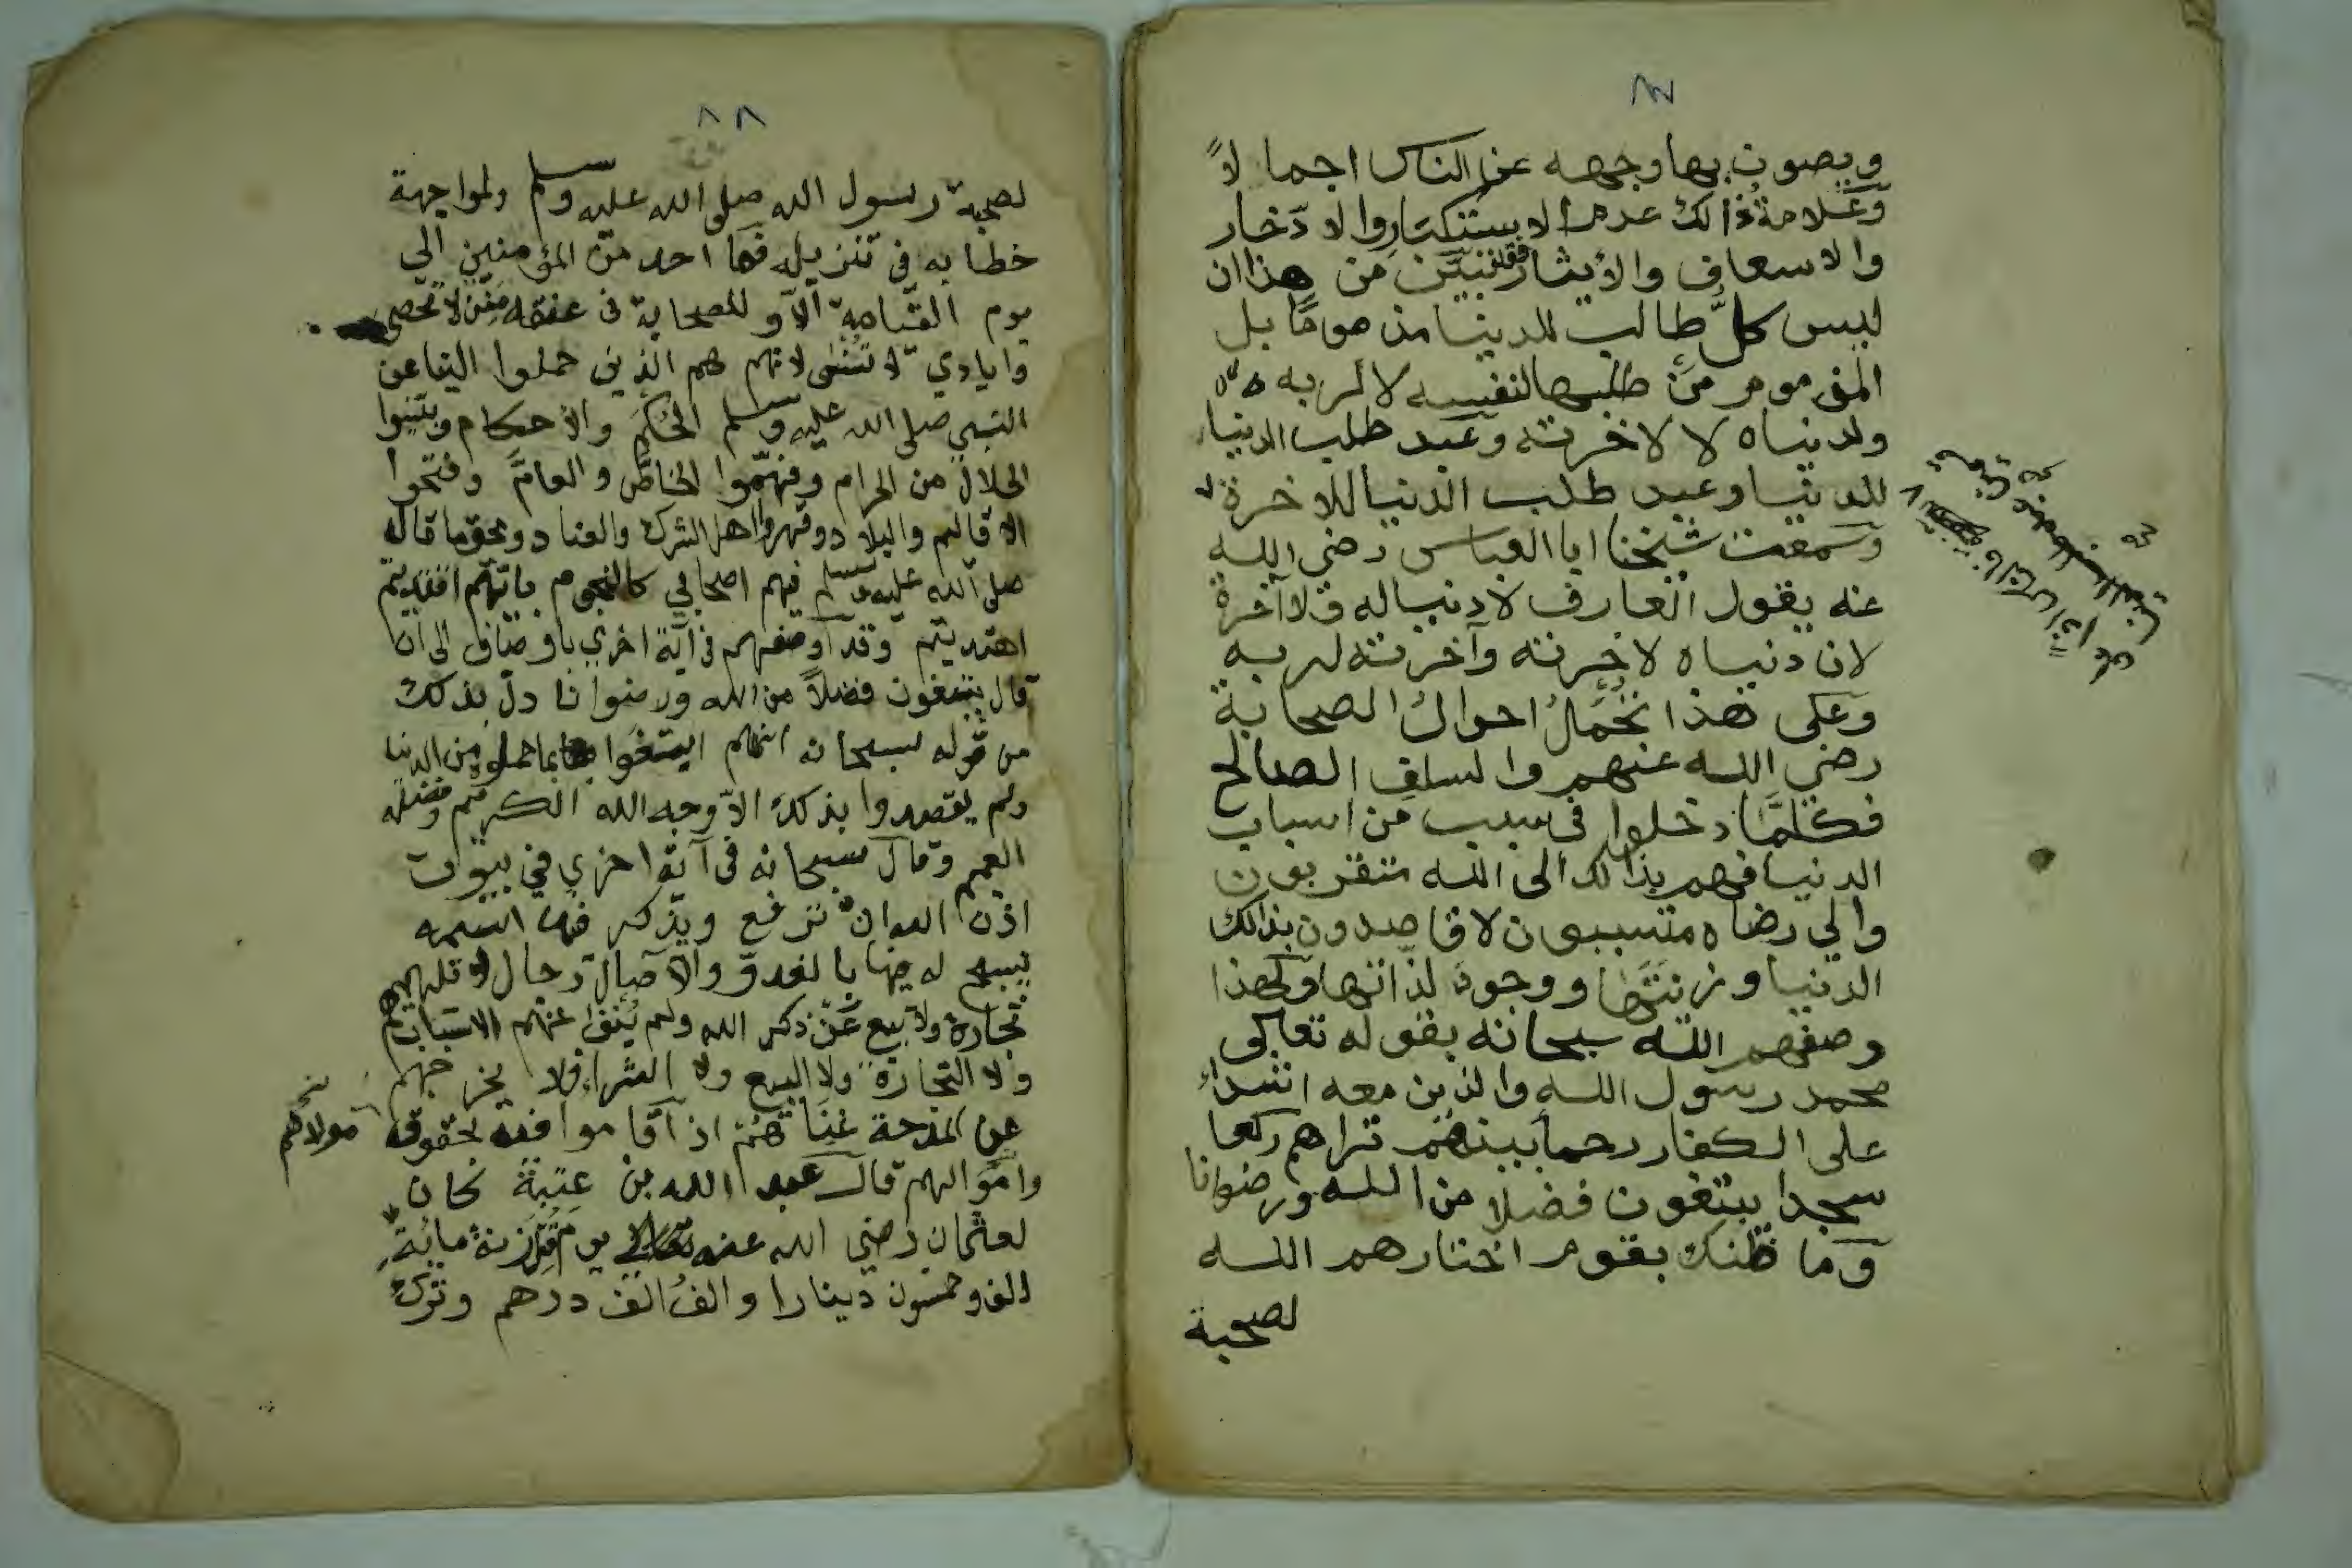 ٨٧
ويصون بها وجهه عن الناس اجمالاً
وعلامة ذالك عدم الاستكثار والادّخار
والاسعاف والأيثار فقد تبيّن من هذا ان
ليس كلُّ طالب للدينا مذموماً بل
المذموم مَن طلبها لنفسه لا لربه
ولدنياه لا لاخرته وعبد طلب الدنيا
للدنيا وعبد طلب الدنيا للاخرة
وسمعت شيخنا ابا العباس رضي الله
عنه يقول العارف لا دنيا له ولا آخرة
لان دنياه لاخرته وآخرته لربه
وعلى هذا تحمل احوال الصحابة
رضي الله عنهم والسلف الصالح
فكلمّا دخلوا في سبب من اسباب
الدنيا فهم بذالك الى الله متقربون
والي رضاه متسببون لا قاصدون بذالك
الدنيا وزينتها ووجود لذاتها ولهذا
وصفهم الله سبحانه بقوله تعالى
محمد رسول الله والذين معه اشداء
على الكفار رحما بينهم تراهم ركعا
سجدا يبتغون فضلا من الله ورضوانا
وما ظنك بقوم اختارهم الله
لصحبة
٨٨
لصحبة رسول الله صلى الله عليه وسلم ولمواجهة
خطابه في تنزيله فما احد من المؤمنين الي
يوم القيامة الّا و للصحابة في عنقه مِنن لا تحصى
وايادي لا تنسى لانهم هم الذين حملوا الينا عن
النبي صلى الله عليه وسلم الحُكم والأحكام وبيّنوا
الحلال من الحرام وفهّموا الخاصَّ والعامَّ وفتحوا
الاقاليم والبلاد وقهروا اهل الشرك والعناد وبحق ما قال
صلى الله عليه وسلم فيهم اصحابي كالنجوم بايّهم اقتديتم
اهتديتم وقد اوصفهم في آية اخري باوصاف الى ان
قال يبتغون فضلاً من الله ورضوانا دلّ بذلك
من قوله سبحانه انهم ابتغوا بما حملوه من الدنيا
ولم يقصدوا بذلك الاّ وجه الله الكريم وفضله
العميم وقال سبحانه في آية اخرى في بيوت
اذن الله ان ترفع ويذكر فيها اسمه
يسبح له فيها بالغدوّ والآصال رجال لا تلهيهم
تجارة ولا بيع عن ذكر الله ولم ينف عنهم الاسباب
ولا التجارة ولا البيع ولا الشراء فلا يخرجهم
عن المدحة غناهم اذا قاموا فيه بحقوق مولاهم
وامواليهم قال عبد الله بن عتبة كان
لعثمان رضي الله عنه يوم قتل خزنة مائة
الف وخمسون دينارا والف الف درهم وترك